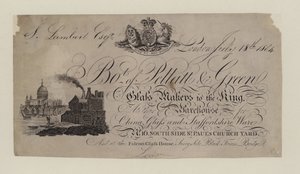 S. Lambert Esqr. London July 18th 1804
Bot. of Pellatt & Green
Glass Makers to the King.
Warehouse
China, Glass and Staffordshire Ware
No. 16, SOUTH SIDE ST. PAULS CHURCH YARD.
And at the Falcon Glass House, Surry Side Black Friars Bridge